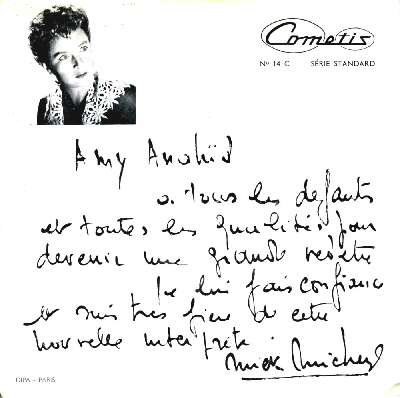 Cometis
Nº 14 C SÉRIE STANDARD
Amy Anahïd
a tous les défauts
et toutes les qualités pour
devenir une grande vedette
Je lui fais confiance
et suis très fière de cette
nouvelle interprète.
Mick Micheyl
DIPA - PARIS